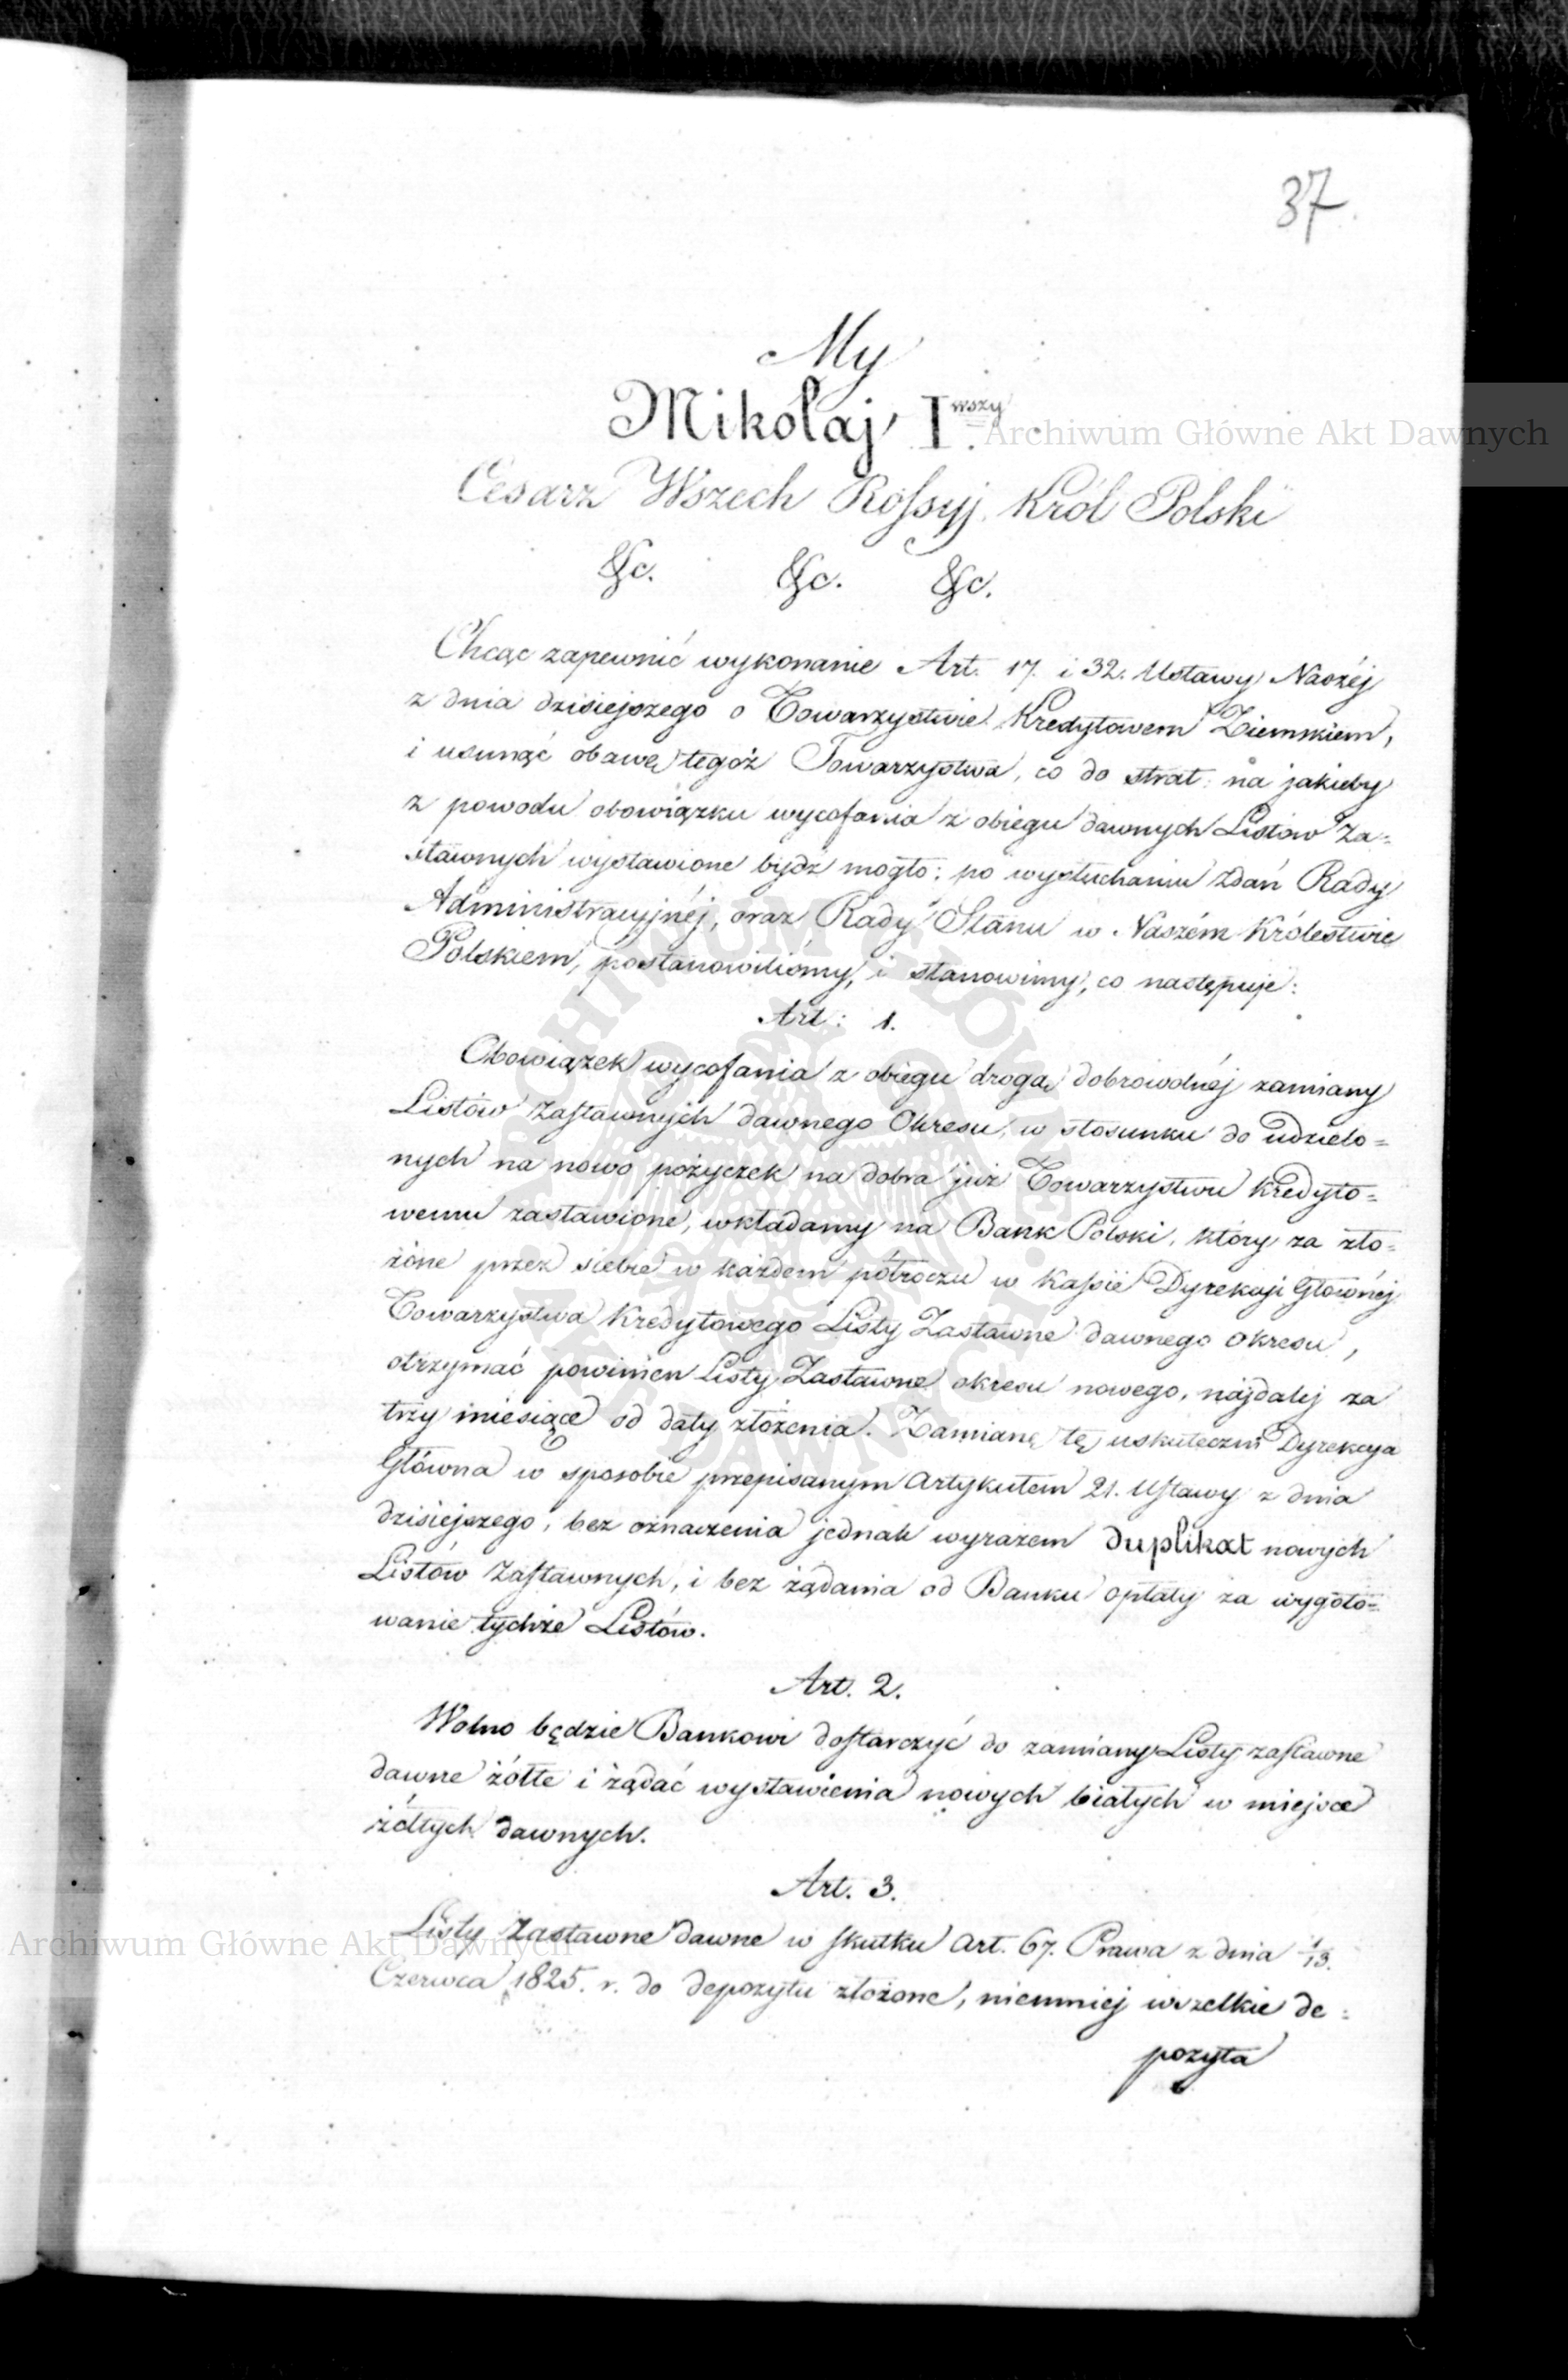 37.
My
Mikołaj I.wszy
Cesarz Wszech Rossyj, Król Polski
&c. &c. &c.
Chcąc zapewnić wykonanie Art. 17. i 32. Ustawy Naszéj
z dnia dzisiejszego o Towarzystwie Kredytowem Ziemskiem,
i usunąć obawę tegoż Towarzystwa, co do strat na jakieby
z powodu obowiązku wycofania z obiegu dawnych Listów Za=
stawnych wystawione bydź mogło; po wysłuchaniu zdań Rady
Administracyjnéj, oraz Rady Stanu w Naszém Królestwie
Polskiem, postanowiliśmy, i stanowimy, co następuje:
Art: 1.
Obowiązek wycofania z obiegu drogą dobrowolnéj zamiany
Listów Zastawnych dawnego Okresu, w stosunku do udzielo=
nych na nowo pożyczek na dobra już Towarzystwu Kredyto=
wemu zastawione, wkładamy na Bank Polski, który za zło=
żone przez siebie w każdem półroczu w Kassie Dyrekcyi Głównéj
Towarzystwa Kredytowego Listy Zastawne dawnego okresu,
otrzymać powinien Listy Zastawne okresu nowego, najdaléj za
trzy miesiące od daty złożenia. Zamianę tę uskuteczni Dyrekcya
Główna w sposobie przepisanym Artykułem 21. Ustawy z dnia
dzisiejszego, bez oznaczenia jednak wyrazem duplikat nowych
Listów Zastawnych, i bez żądania od Banku opłaty za wygoto=
wanie tychże Listów.
Art. 2.
Wolno będzie Bankowi dostarczyć do zamiany Listy zastawne
dawne żółte i żądać wystawienia nowych białych w miejsce
żółtych dawnych.
Art. 3.
Listy Zastawne dawne w skutku Art. 67. Prawa z dnia 1/13.
Czerwca 1825. r. do depozytu złożone, niemniej wszelkie de=
pozyta
Archiwum Główne Akt Dawnych
Archiwum Główne Akt Dawnych
ARCHIWUM GŁÓWNE AKT DAWNYCH